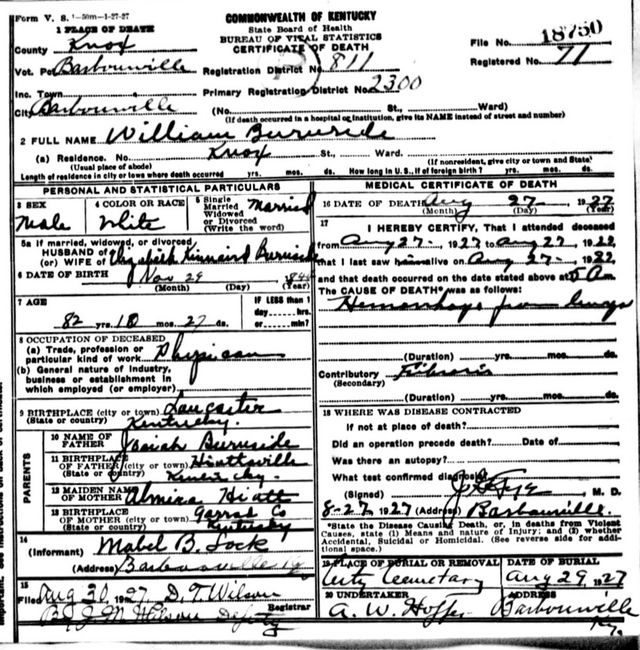 Form V. S. 1-50m-1-27-27
COMMONWEALTH OF KENTUCKY
State Board of Health
BUREAU OF VITAL STATISTICS
CERTIFICATE OF DEATH
1 PLACE OF DEATH
County Knox
File No. 18750
Vot. Pct Barbourville
Registration District No. 811
Registered No. 71
Inc. Town
Primary Registration District No. 2300
City Barbourville
(No. St., Ward)
(If death occurred in a hospital or institution, give its NAME instead of street and number)
2 FULL NAME William Burnside
(a) Residence. No. Knox St., Ward.
(Usual place of abode) (If nonresident, give city or town and State)
Length of residence in city or town where death occurred yrs. mos. ds. How long in U. S., if of foreign birth? yrs. mos. ds.
PERSONAL AND STATISTICAL PARTICULARS
3 SEX Male
4 COLOR OR RACE White
5 Single Married Widowed or Divorced (Write the word) Married
5a If married, widowed, or divorced
HUSBAND of
(or) WIFE of Elizabeth Kinnaird Burnside
6 DATE OF BIRTH Nov 29
(Month) (Day) (Year)
7 AGE
82 yrs. 10 mos. 27 ds.
IF LESS than 1
day hrs.
or min?
8 OCCUPATION OF DECEASED
(a) Trade, profession or
particular kind of work Physician
(b) General nature of industry,
business or establishment in
which employed (or employer)
9 BIRTHPLACE (city or town) Lancaster
(State or country) Kentucky
PARENTS
10 NAME OF
FATHER Josiah Burnside
11 BIRTHPLACE
OF FATHER (city or town) Hiattsville
(State or country) Kentucky
12 MAIDEN NAME
OF MOTHER Almira Hiatt
13 BIRTHPLACE
OF MOTHER (city or town) Garrard Co
(State or country) Kentucky
14
(Informant) Mabel B. Lock
(Address) Barbourville Ky
15
Filed Aug 30, 1927 D. T. Wilson
Registrar
By J M Wilson Deputy
MEDICAL CERTIFICATE OF DEATH
16 DATE OF DEATH Aug 27 1927
(Month) (Day) (Year)
17
I HEREBY CERTIFY, That I attended deceased
from Aug 27, 1927 to Aug 27, 1922
that I last saw him alive on Aug 27, 1982
and that death occurred on the date stated above at 5 A m.
The CAUSE OF DEATH* was as follows:
Hemorrhage from lungs
(Duration) yrs. mos. ds.
Contributory Fibrosis
(Secondary)
(Duration) yrs. mos. ds.
18 WHERE WAS DISEASE CONTRACTED
If not at place of death?
Did an operation precede death? Date of
Was there an autopsy?
What test confirmed diagnosis?
(Signed) M. D.
8-27 1927 (Address) Barbourville.
*State the Disease Causing Death, or, in deaths from Violent
Causes, state (1) Means and nature of Injury; and (2) whether
Accidental, Suicidal or Homicidal. (See reverse side for addi-
tional space.)
19 PLACE OF BURIAL OR REMOVAL
City Cemetary
DATE OF BURIAL
Aug 29, 1927
20 UNDERTAKER
A. W. Hopper
Barbourville
Ky.